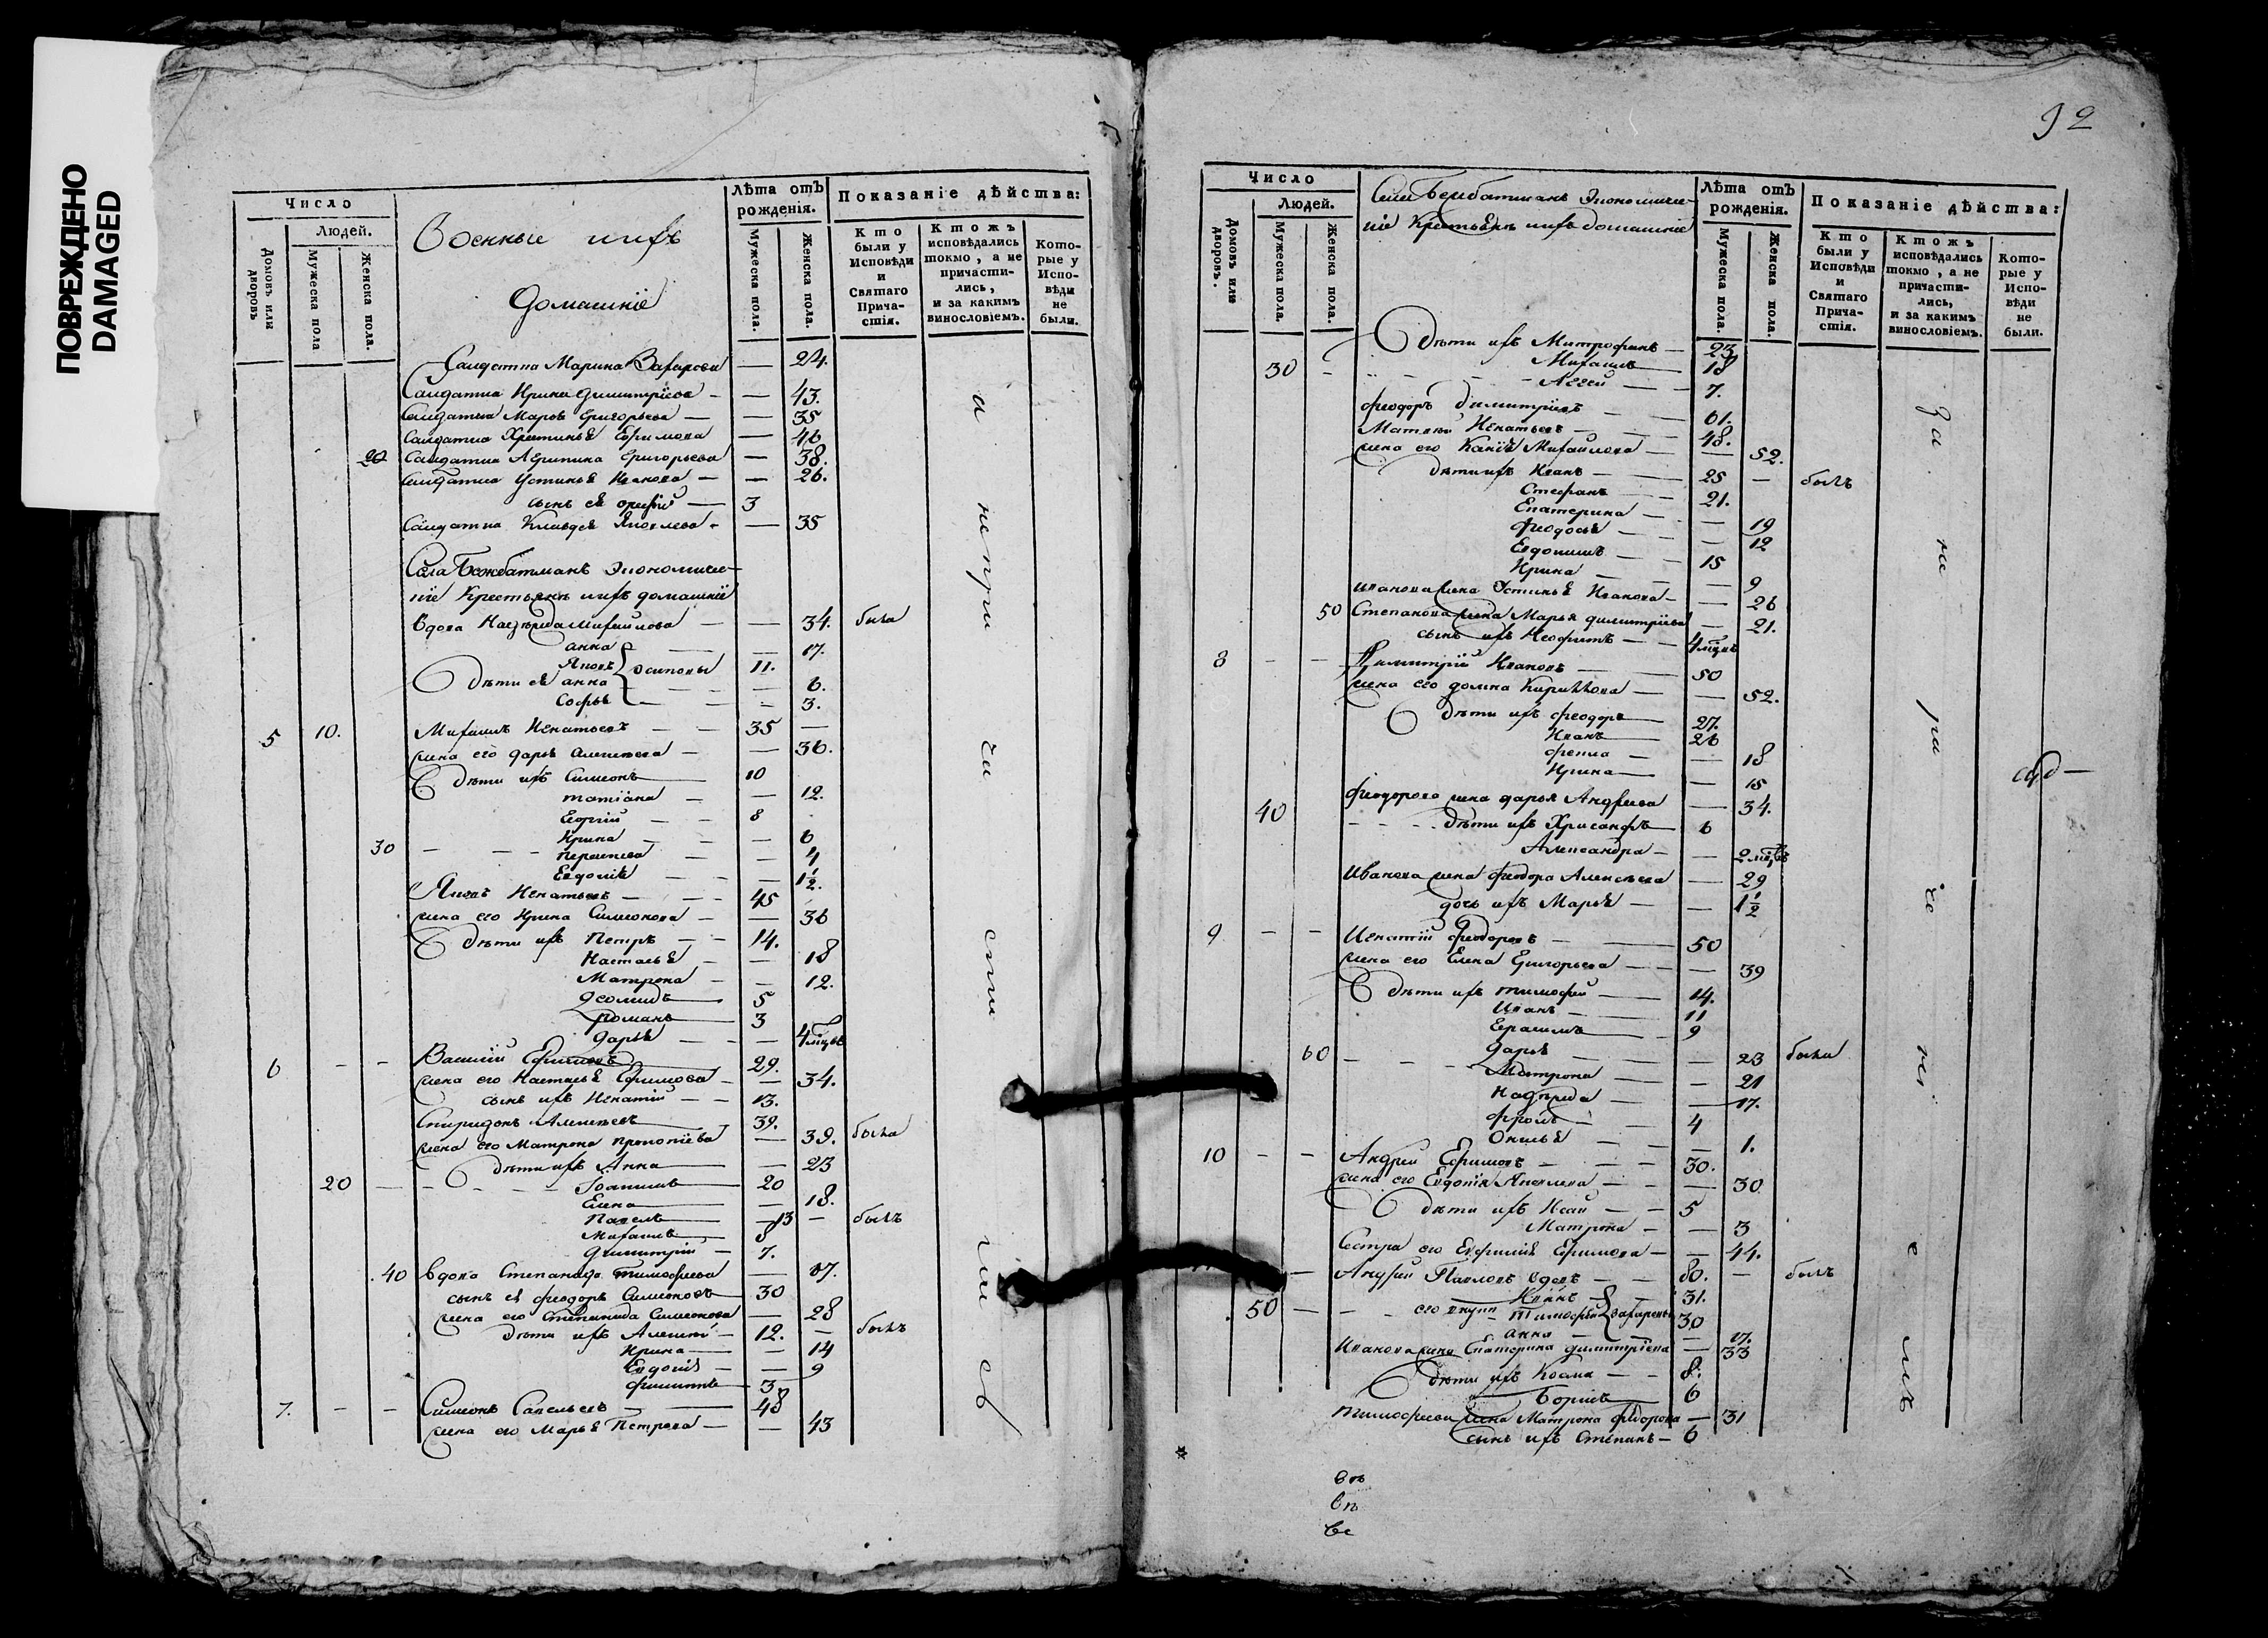 ПОВРЕЖДЕНО
DAMAGED
Число
Людей.
Домовъ или дворовъ
Мужеска пола
Женска пола.
Военные и ихъ
Домашніе
Лѣта отъ рожденія.
Мужеска пола.
Женска пола.
Показаніе дѣйства:
Кто были у Исповѣди и Святаго Причастія.
Ктожъ исповѣдались токмо, а не причастились, и за какимъ винословіемъ.
Которые у Исповѣди не были.
Салдатка Марина Захарова — 24.
Салдатка Ирина Димитріева — 43.
Салдатка Марѳа Григорьева — 35
Салдатка Христинья Ефимова — 46
20 Салдатка Агрипина Григорьева — 38.
Салдатка Устинья Иванова — 26.
сынъ ея 3
Салдатка Клавдея Яковлева — 35
Села Бежбатманъ Экономиче-
кіе Крестьянѣ и ихъ домашніе
вдова Надѣжда Михайлова — 34. была
анна — 17.
Яковъ осиповы 11.
Дѣти ея анна — 6.
Софья — 3.
5 10. Михаилъ Игнатьевъ 35 —
жена его дарья алексѣева — 36.
дѣти ихъ Симеонъ 10
татіана — 12.
Георгій 8
Ирина — 6
30 параскева — 4
Евдокія — 1½.
Яковъ Игнатьевъ 45
жена его Ирина Симеонова — 36
дѣти ихъ Петръ 14.
Настасья — 18
Матрона — 12.
Діомидъ 5
Романъ 3
Дарья — 4 мцвъ
6 - - Василій Ефимовъ 29.
жена его Настасья Ефимова — 34.
сынъ ихъ Игнатій 13.
Спиридонъ Алексѣевъ 39.
жена его Матрона прокопіева — 39. была
дѣти ихъ Анна — 23
20 Іоакимъ 20
Елена — 18.
Павелъ 13 — былъ
Михаилъ 8
Димитрій 7.
40 вдова Степанида Тимофеева — 57.
сынъ ея феодоръ Симеоновъ 30
жена его Степанида Симеонова — 28
дѣти ихъ Алексѣй 12. — былъ
Ирина — 14
Евдокія — 9
филиппъ 3
7. - - Симеонъ Савельевъ 48
жена его Марья Петрова — 43
а не при ча сти ли сь
92
Число
Людей.
Домовъ или дворовъ.
Мужеска пола.
Женска пола.
Села Бежбатманъ Экономиче-
кіе Крестьянѣ и ихъ домашніе
Лѣта отъ рожденія.
Мужеска пола.
Женска пола.
Показаніе дѣйства:
Кто были у Исповѣди и Святаго Причастія.
Ктожъ исповѣдались токмо, а не причастились, и за какимъ винословіемъ.
Которые у Исповѣди не были.
Дѣти ихъ Митрофанъ 23
30 - Михаилъ 18
Аггей 7.
феодоръ димитріевъ 61.
Матвѣй Игнатьевъ 48.
жена его Михайлова — 52.
дѣти ихъ Иванъ 25 — былъ
Стефанъ 21.
Екатерина — 19
феодосья — 12
Евдокимъ 15
Ирина — 9
иванова жена Устинья Иванова — 26
50 Степанова жена Марья димитріева — 21.
сынъ ихъ Неофитъ 4 мцвъ
8 - - Димитрій Ивановъ 50
жена его домна Кирилова — 52.
дѣти ихъ феодоръ 27.
Иванъ 26
фекла — 18
Ирина — 15
феодорова жена дарья Андреева — 34.
40 дѣти ихъ Хрисанфъ 6
Александра — 2 мцвъ
Иванова жена феодора Алексѣева — 29
дочь ихъ Марья — 1½
9 - - Игнатій феодоровъ 50
жена его Елена Григорьева — 39
дѣти ихъ тимофей 14.
Иванъ 11
Герасимъ 9
60 Дарья — 23 была
Матрона — 21
Надѣжда — 17.
фролъ 4
— 1.
10 - - Андрей Ефимовъ 30.
жена его Евдокія Яковлева — 30
дѣти ихъ Исай 5
Матрона — 3
Сестра его Евфимія Ефимова — 44.
— Андрей Павловъ вдовъ 80. — былъ
Иванъ 31.
50 — его внуки Тимофей захаровы 30
анна — 17.
Иванова жена Екатерина димитріева — 33
дѣти ихъ Косма 8.
Борисъ 6
тимофеева жена Матрона федорова — 31
сынъ ихъ Степанъ 6
за не ра че ні е мъ
вп